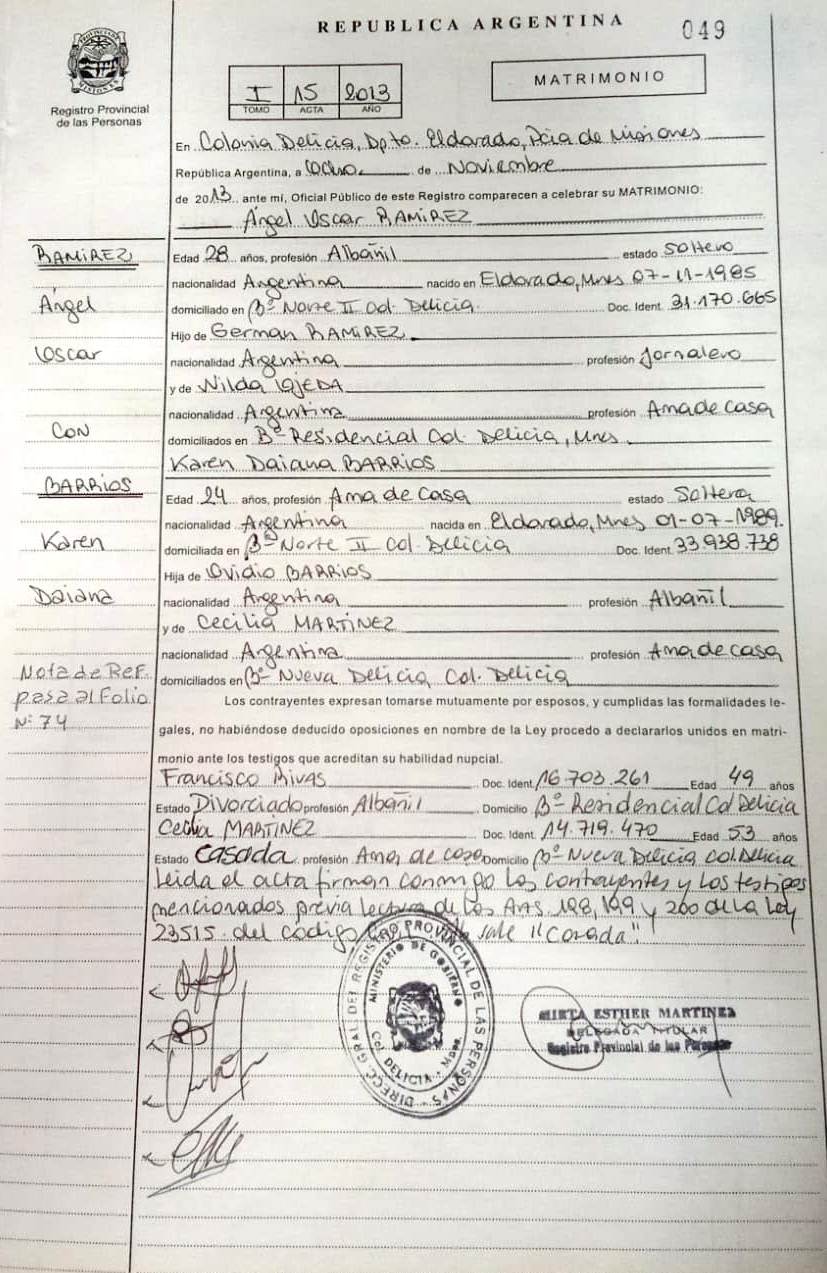 REPUBLICA ARGENTINA
049
PROVINCIA DE MISIONES
Registro Provincial
de las Personas
I 15 2013
TOMO ACTA AÑO
MATRIMONIO
En Colonia Delicia, Dpto. Eldorado, Pcia de Misiones
República Argentina, a ocho de Noviembre
de 2013 ante mi, Oficial Público de este Registro comparecen a celebrar su MATRIMONIO:
Ángel Oscar RAMIREZ
RAMIREZ
Ángel
Oscar
CON
BARRIOS
Karen
Daiana
Nota de Ref.
pasa al Folio
Nº 74
Edad 28 años, profesión Albañil estado Soltero
nacionalidad Argentina nacido en Eldorado, Mnes 07-11-1985
domiciliado en Bº Norte II Col. Delicia. Doc. Ident. 31.170.665
Hijo de German RAMIREZ
nacionalidad Argentina profesión Jornalero
y de Nilda OJEDA
nacionalidad Argentina profesión Ama de casa
domiciliados en Bº Residencial Col. Delicia, Mnes
Karen Daiana BARRIOS
Edad 24 años, profesión Ama de Casa estado Soltera
nacionalidad Argentina nacida en Eldorado, Mnes 01-07-1989.
domiciliada en Bº Norte II Col. Delicia Doc. Ident. 33.938.738
Hija de Ovidio BARRIOS
nacionalidad Argentina profesión Albañil
y de Cecilia MARTINEZ
nacionalidad Argentina profesión Ama de casa
domiciliados en Bº Nueva Delicia Col. Delicia
Los contrayentes expresan tomarse mutuamente por esposos, y cumplidas las formalidades le-
gales, no habiéndose deducido oposiciones en nombre de la Ley procedo a declararlos unidos en matri-
monio ante los testigos que acreditan su habilidad nupcial.
Francisco RIVAS Doc. Ident. 16.703.261 Edad 49 años
Estado Divorciado profesión Albañil Domicilio Bº Residencial Col Delicia
Cecilia MARTINEZ Doc. Ident. 14.719.470 Edad 53 años
Estado Casada profesión Ama de casa Domicilio Bº Nueva Delicia Col. Delicia
Leida el acta firman conmigo los contrayentes y los testigos
mencionados previa lectura de los Arts 198, 199 y 200 de la Ley
23515 del código vale "Casada".
DIRECC. GRAL. DEL REGISTRO PROVINCIAL DE LAS PERSONAS
MINISTERIO DE GOBIERNO
Col. DELICIA - Mnes.
MIRTA ESTHER MARTINEZ
DELEGADA TITULAR
Registro Provincial de las Personas